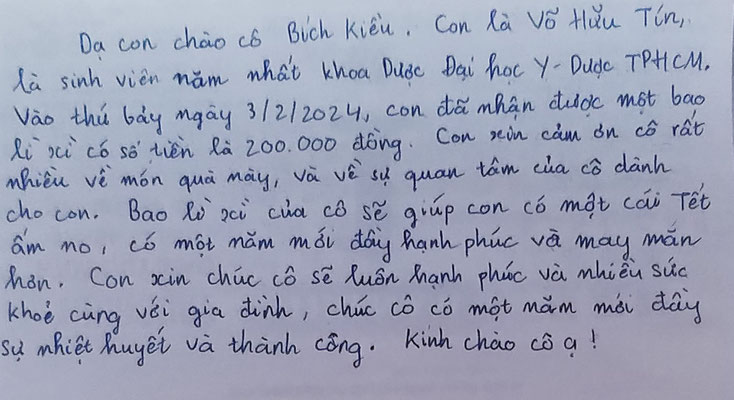 Dạ con chào cô Bích Kiều. Con là Võ Hữu Tín,
là sinh viên năm nhất khoa Dược Đại học Y-Dược TPHCM.
Vào thứ bảy ngày 3/2/2024, con đã nhận được một bao
lì xì có số tiền là 200.000 đồng. Con xin cảm ơn cô rất
nhiều về món quà này, và về sự quan tâm của cô dành
cho con. Bao lì xì của cô sẽ giúp con có một cái Tết
ấm no, có một năm mới đầy hạnh phúc và may mắn
hơn. Con xin chúc cô sẽ luôn hạnh phúc và nhiều sức
khoẻ cùng với gia đình, chúc cô có một năm mới đầy
sự nhiệt huyết và thành công. Kính chào cô ạ!